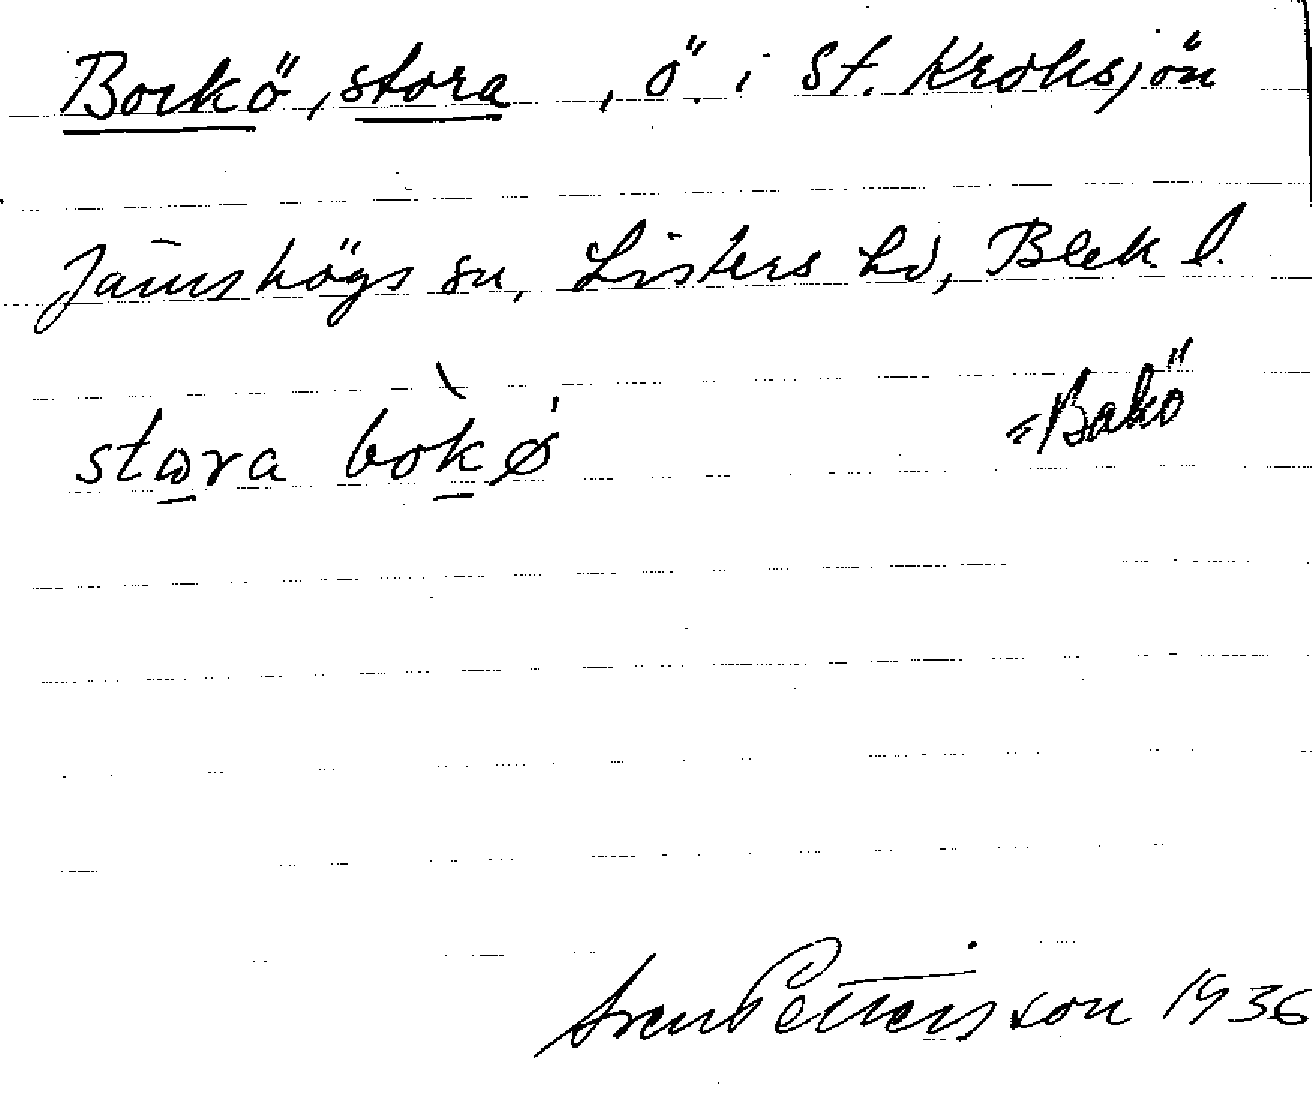 Bockö, stora, ö i St. Kroksjön
Jämshögs sn, Listers hd, Blek. l.
stωra bòkø̍
=Bakö
Sven Pettersson 1936